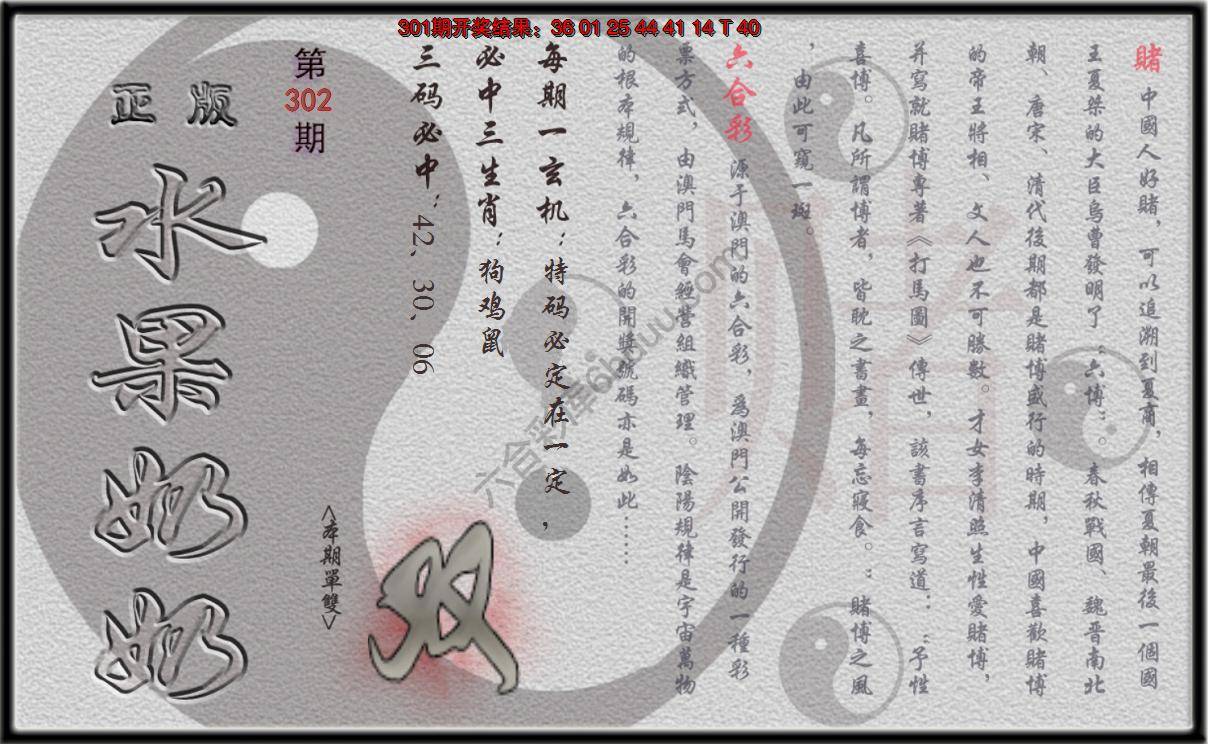 301期开奖结果：36 01 25 44 41 14 T 40
賭 中國人好賭，可以追溯到夏商，相傳夏朝最後一個國
王夏桀的大臣烏曹發明了“六博”。春秋戰國、魏晋南北
朝、唐宋、清代後期都是賭博盛行的時期，中國喜歡賭博
的帝王將相、文人也不可勝數。才女李清照生性愛賭博，
并寫就賭博專著《打馬圖》傳世，該書序言寫道：“予性
喜博。凡所謂博者，皆耽之書畫，每忘寢食。：賭博之風
，由此可窺一斑。
六合彩 源于澳門的六合彩，爲澳門公開發行的一種彩
票方式，由澳門馬會經營組織管理。陰陽規律是宇宙萬物
的根本規律，六合彩的開獎號碼亦是如此……
每期一玄机：特码必定在一定，
必中三生肖：狗鸡鼠
三码必中：42、30、06
第
302
期
<本期單雙>
双
正版
水果奶奶
赌
六合彩库6hduu.com